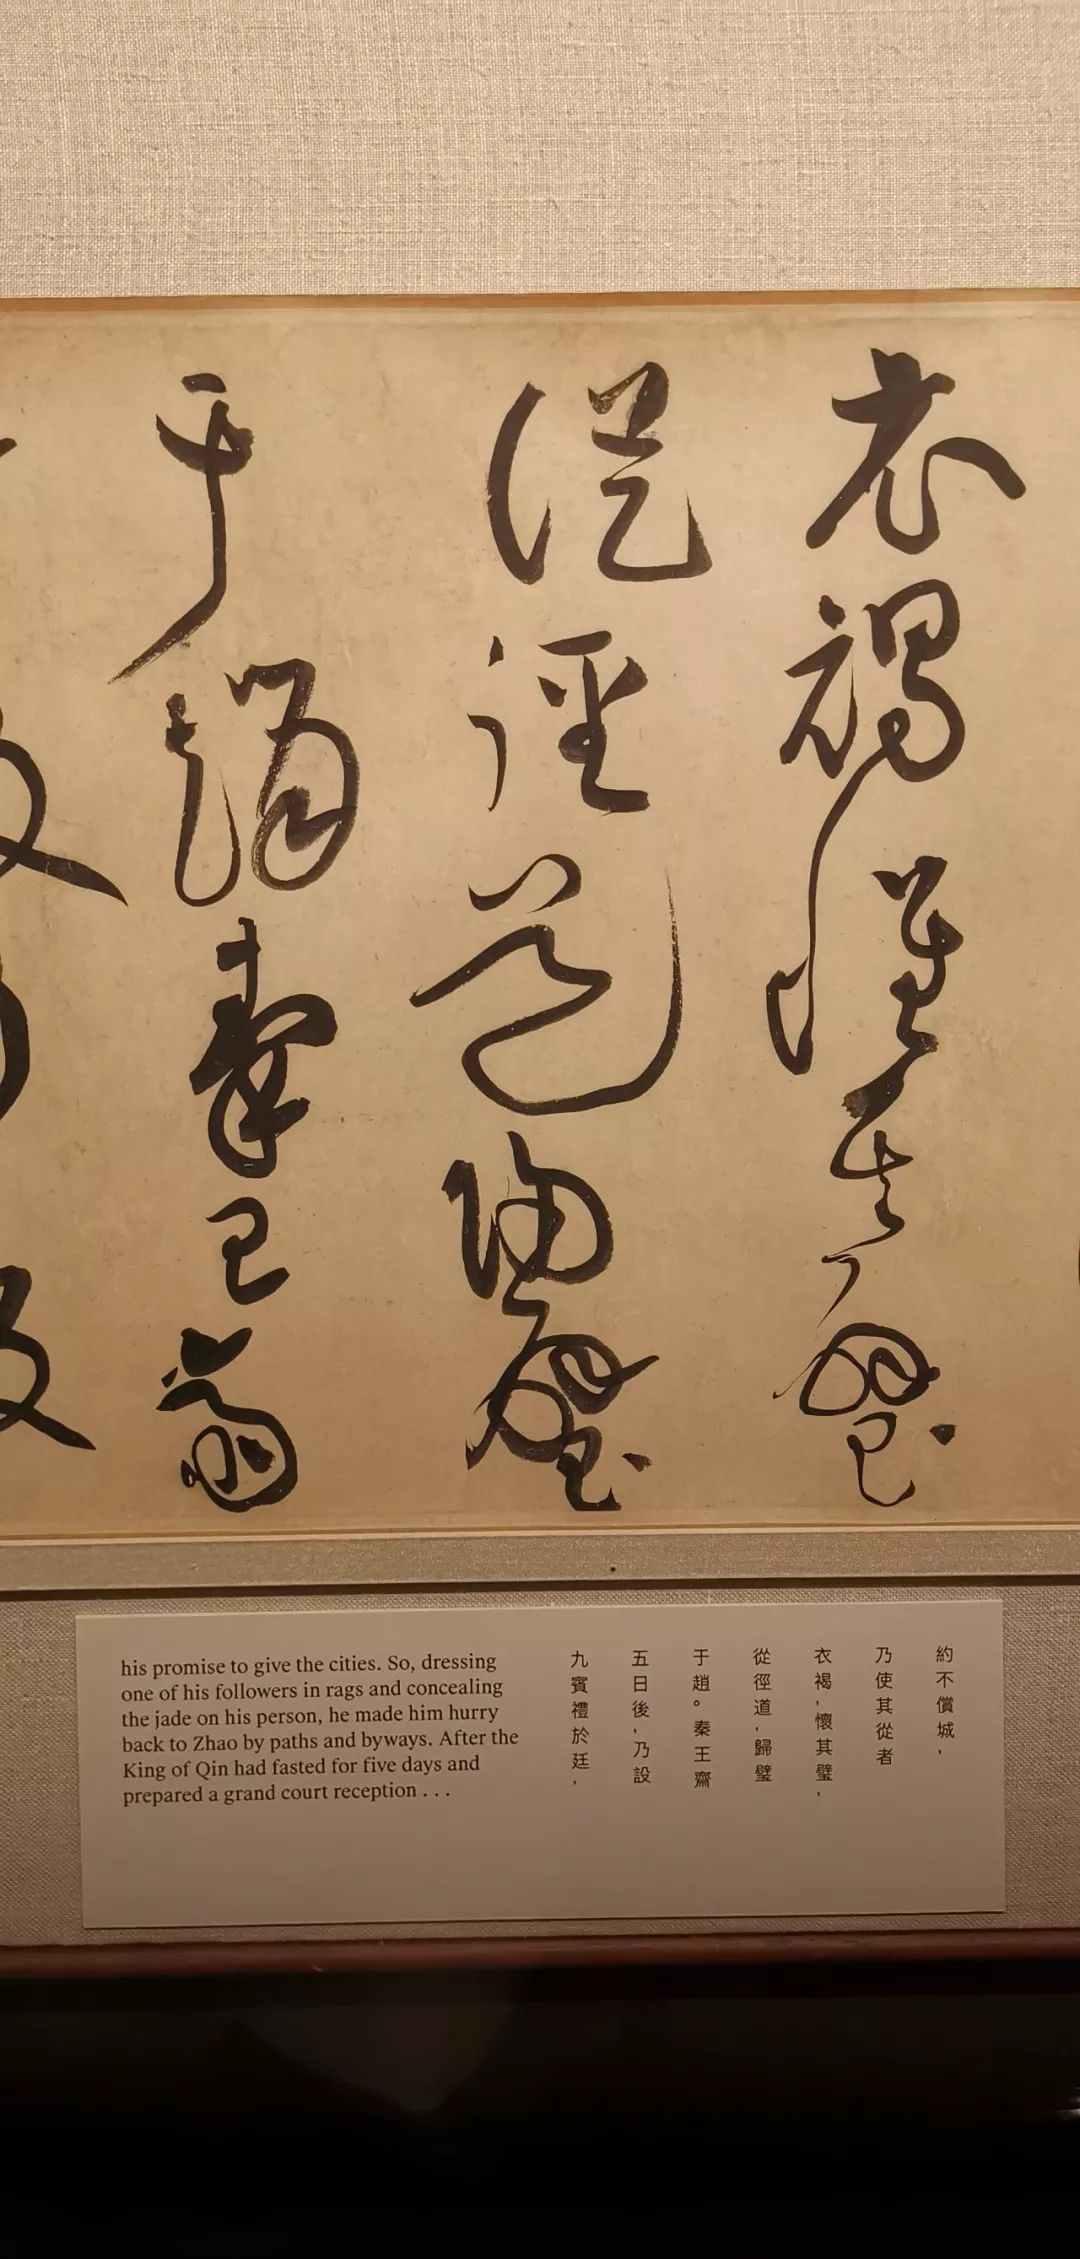 衣褐懷其璧
從徑道歸璧
于趙秦王齋
his promise to give the cities. So, dressing
one of his followers in rags and concealing
the jade on his person, he made him hurry
back to Zhao by paths and byways. After the
King of Qin had fasted for five days and
prepared a grand court reception . . .
約不償城，
乃使其從者
衣褐，懷其璧，
從徑道，歸璧
于趙。秦王齋
五日後，乃設
九賓禮於廷，